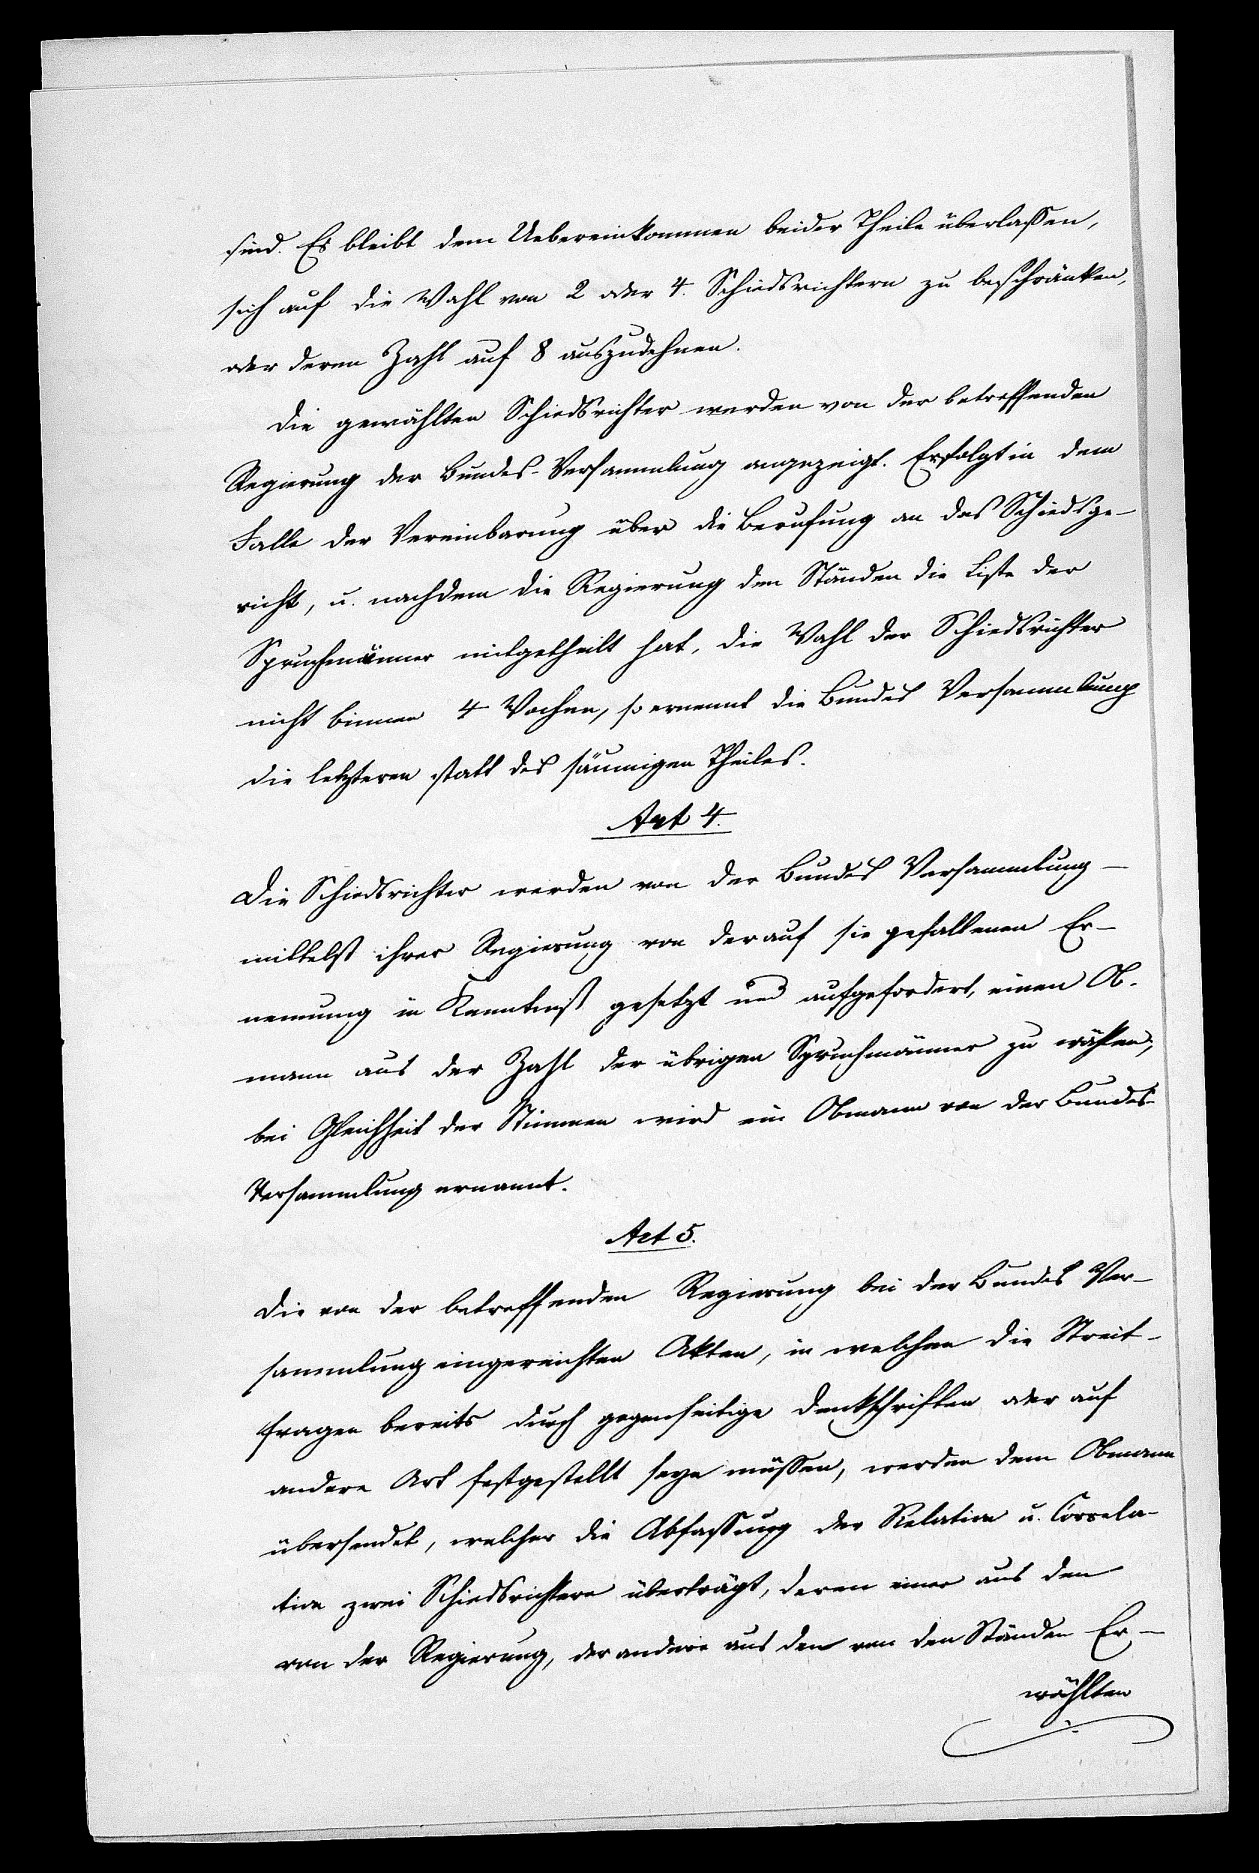 sind. Es bleibt dem Uebereinkommen beider Theile überlassen,
sich auf die Wahl von 2 oder 4. Schiedsrichtern zu beschränken,
oder deren Zahl auf 8 auszudehnen.
Die gewählten Schiedsrichter werden von der betreffenden
Regierung der Bundes-Versammlung angezeigt. Erfolgt in dem
Falle der Vereinbarung über die Berufung an das Schiedsge-
richt, u. nachdem die Regierung den Ständen die Liste der
Spruchmänner mitgetheilt hat, die Wahl der Schiedsrichter
nicht binnen 4 Wochen, so ernennt die Bundes Versammlung
die letzteren statt des säumigen Theiles.
Art 4.
Die Schiedsrichter werden von der Bundes Versammlung –
mittelst ihrer Regierung von der auf sie gefallenen Er-
nennung in Kenntniß gesetzt und aufgefordert, einen Ob-
mann aus der Zahl der übrigen Spruchmänner zu wählen;
bei Gleichheit der Stimmen wird ein Obmann von der Bundes-
Versammlung ernannt.
Art 5.
Die von der betreffenden Regierung bei der Bundes Ver-
sammlung eingereichten Akten, in welchen die Streit-
fragen bereits durch gegenseitige Denkschriften oder auf
andere Art festgestellt seyn müssen, werden dem Obmann
übersendet, welcher die Abfassung der Relation u. Correla-
tion zwei Schiedsrichtern überträgt, deren einer aus den
von der Regierung, der andere aus den von den Ständen Er-
wählten